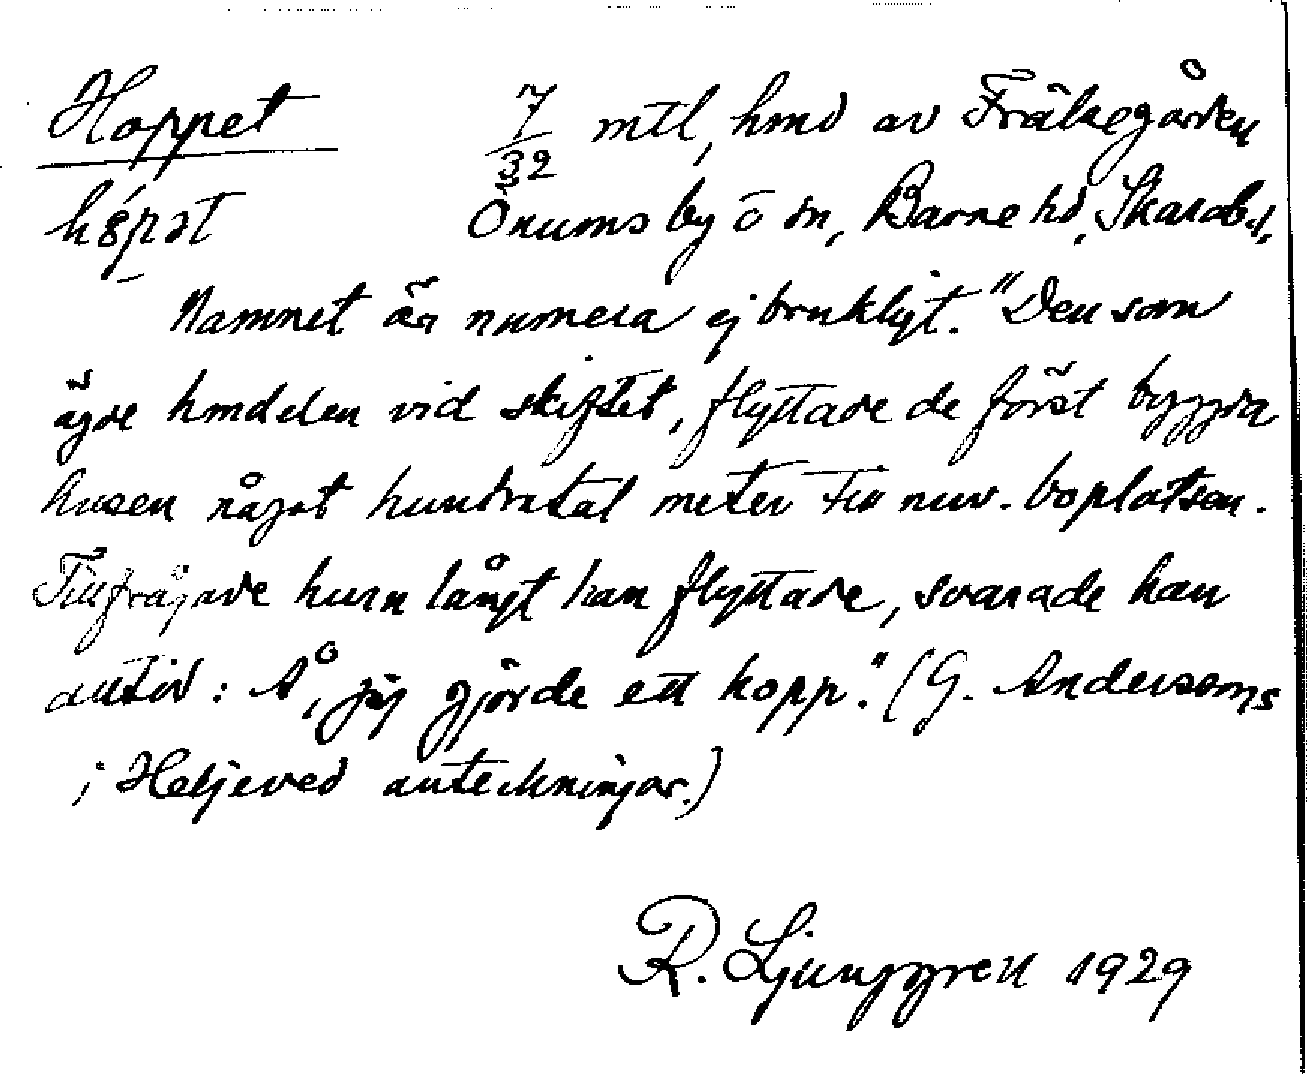 Hoppet 7/32 mtl, hmd av Fräkegården
hǿpət Önums by o sn, Barne hd, Skarab. l.
Namnet är numera ej brukligt. "Den som
ägde hmdelen vid skiftet, flyttade de först byggda
husen något hundratal meter till nuv. boplatsen.
Tillfrågade huru långt han flyttade, svarade han
alltid: Å, jag gjorde ett hopp." (G. Anderssons
i Heljeved anteckningar.)
R. Ljunggren 1929